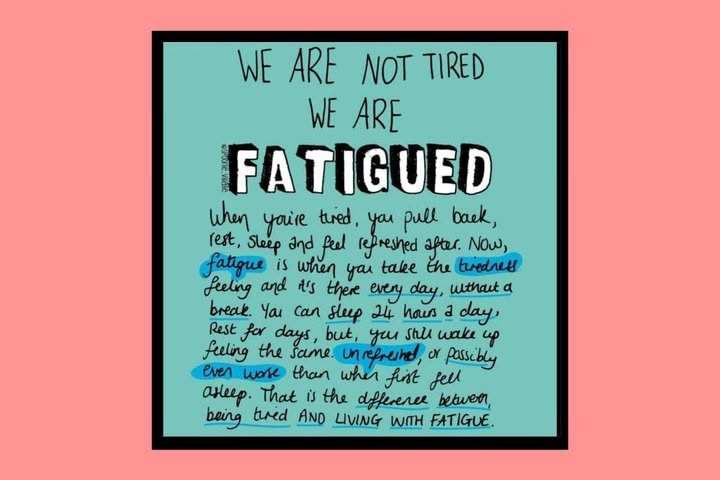 WE ARE NOT TIRED
WE ARE
FATIGUED
When you're tired, you pull back,
rest, sleep and feel refreshed after. Now,
fatigue is when you take the tiredness
feeling and it's there every day, without a
break. You can sleep 24 hours a day,
Rest for days, but, you still wake up
feeling the same. unrefreshed, or possibly
even worse than when first fell
asleep. That is the difference between,
being tired AND LIVING WITH FATIGUE.